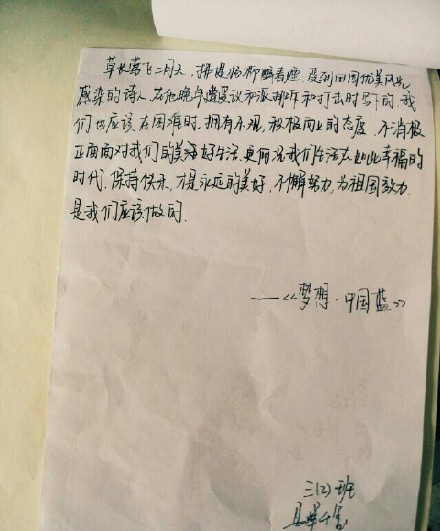 草长莺飞二月天,拂堤杨柳醉春烟。受到田园优美风光
感染的诗人,在他晚年遭受议和派排斥和打击时写下的。我
们也应该在困难时,拥有乐观,积极向上的态度,不消极
正面面对我们的美好生活,更何况我们生活在如此幸福的
时代。保持快乐,才是永远的美好,不懈努力,为祖国效力,
是我们应该做的。
——《梦想·中国蓝》
三(2)班